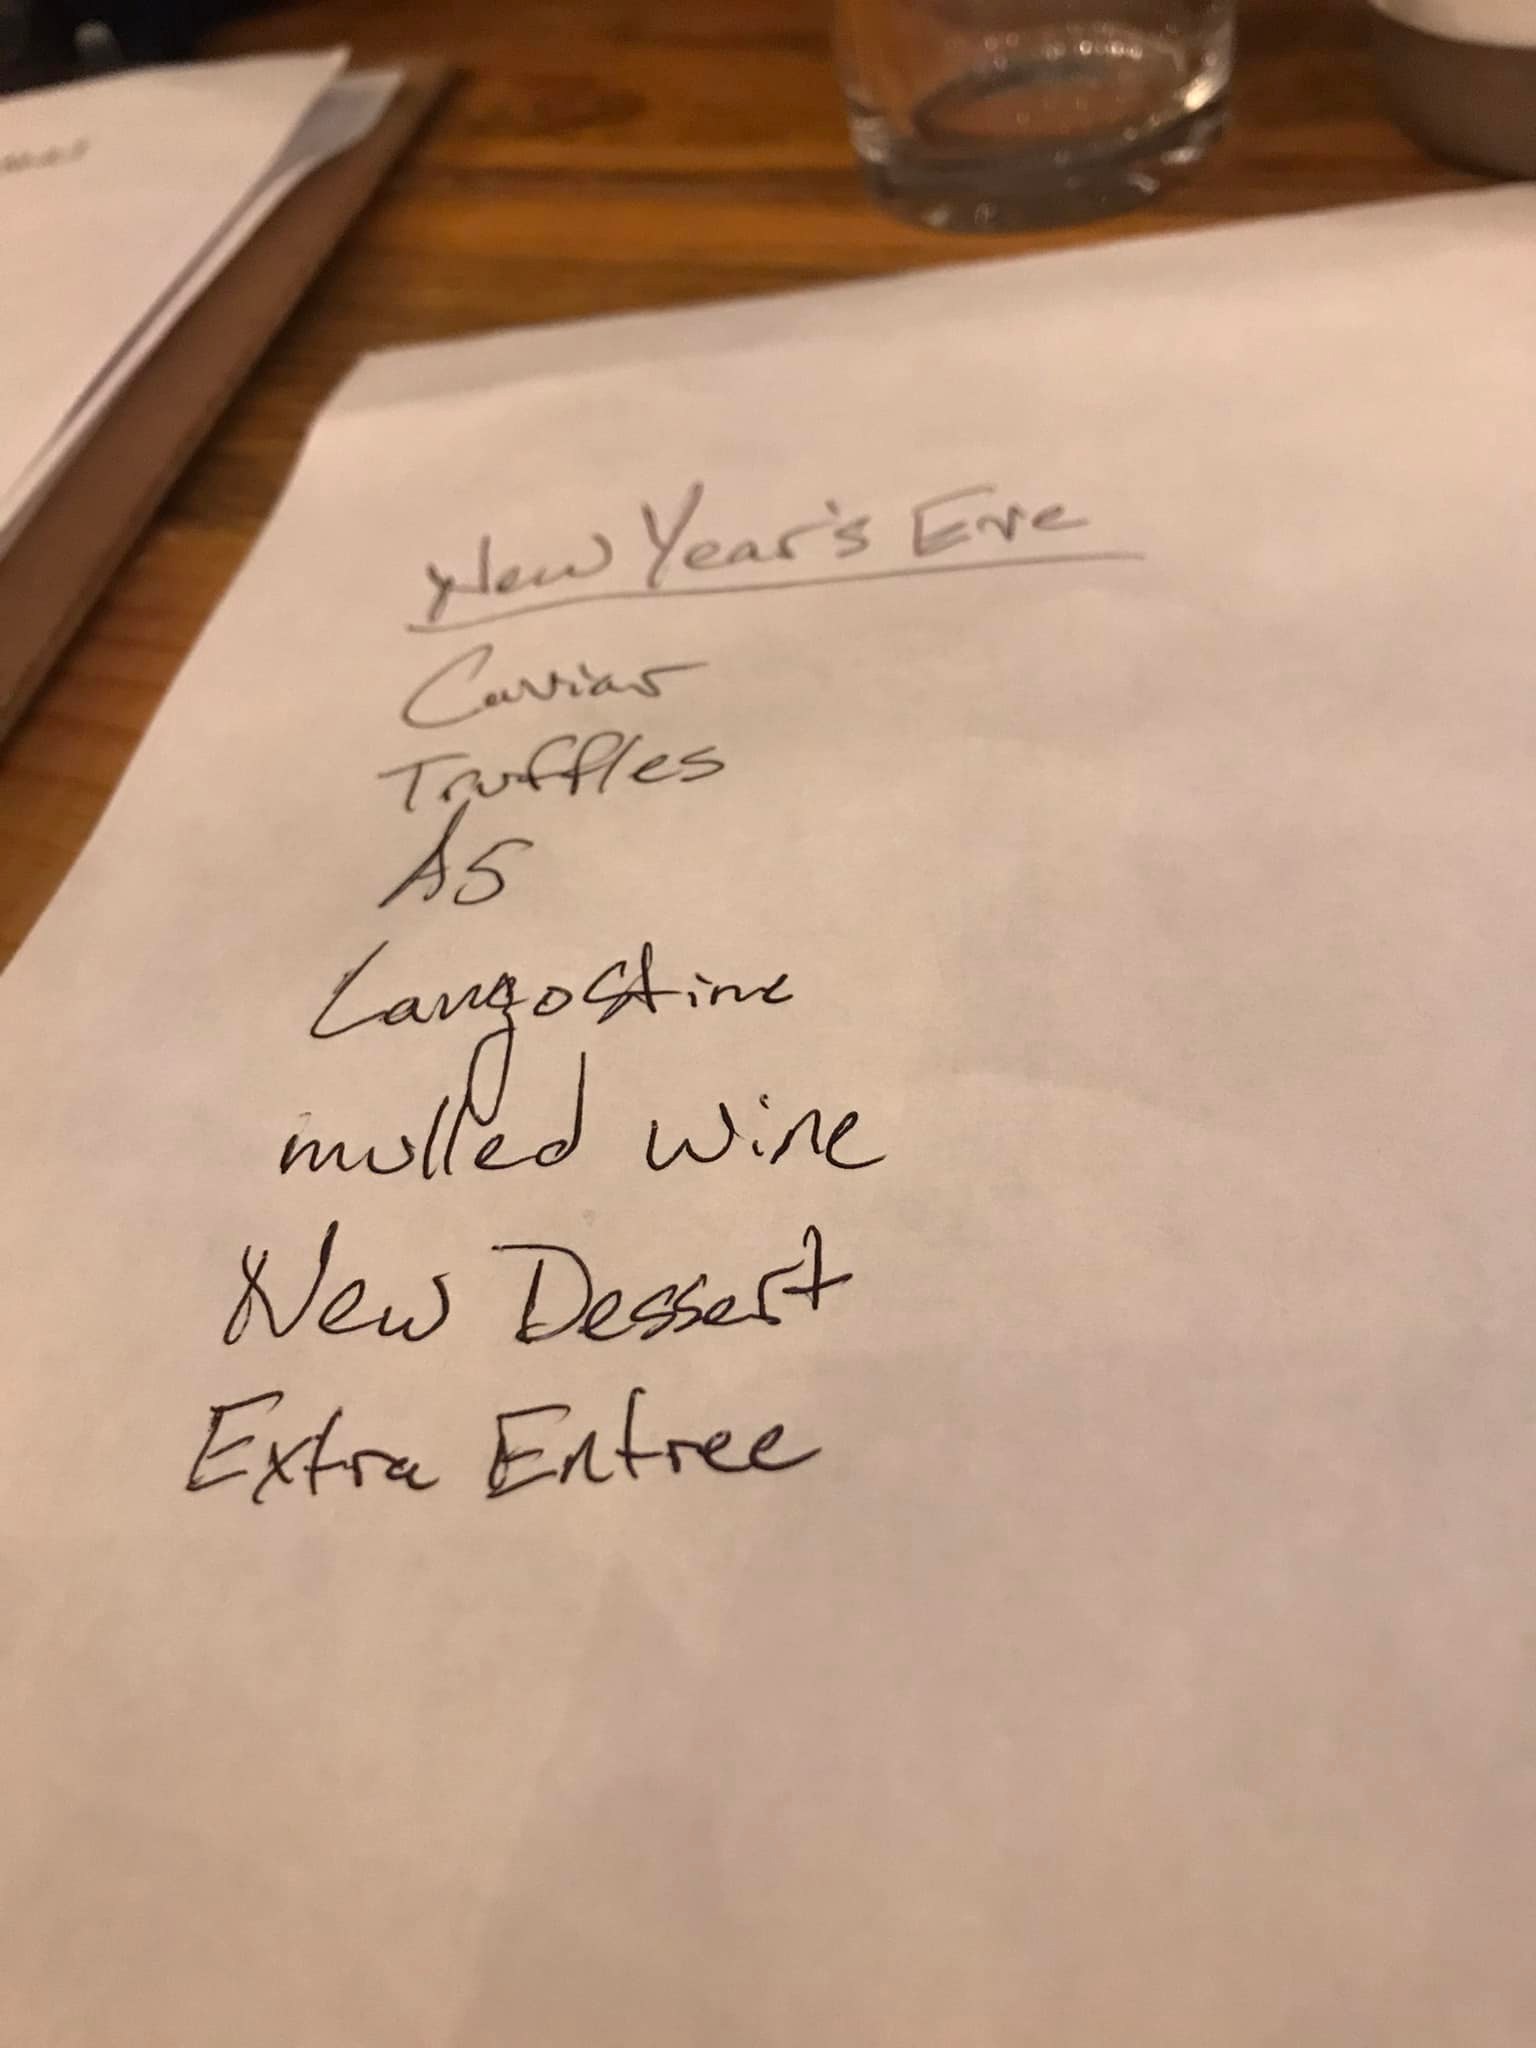 New Year's Eve
Caviar
Truffles
A5
Langostine
mulled wine
New Dessert
Extra Entree